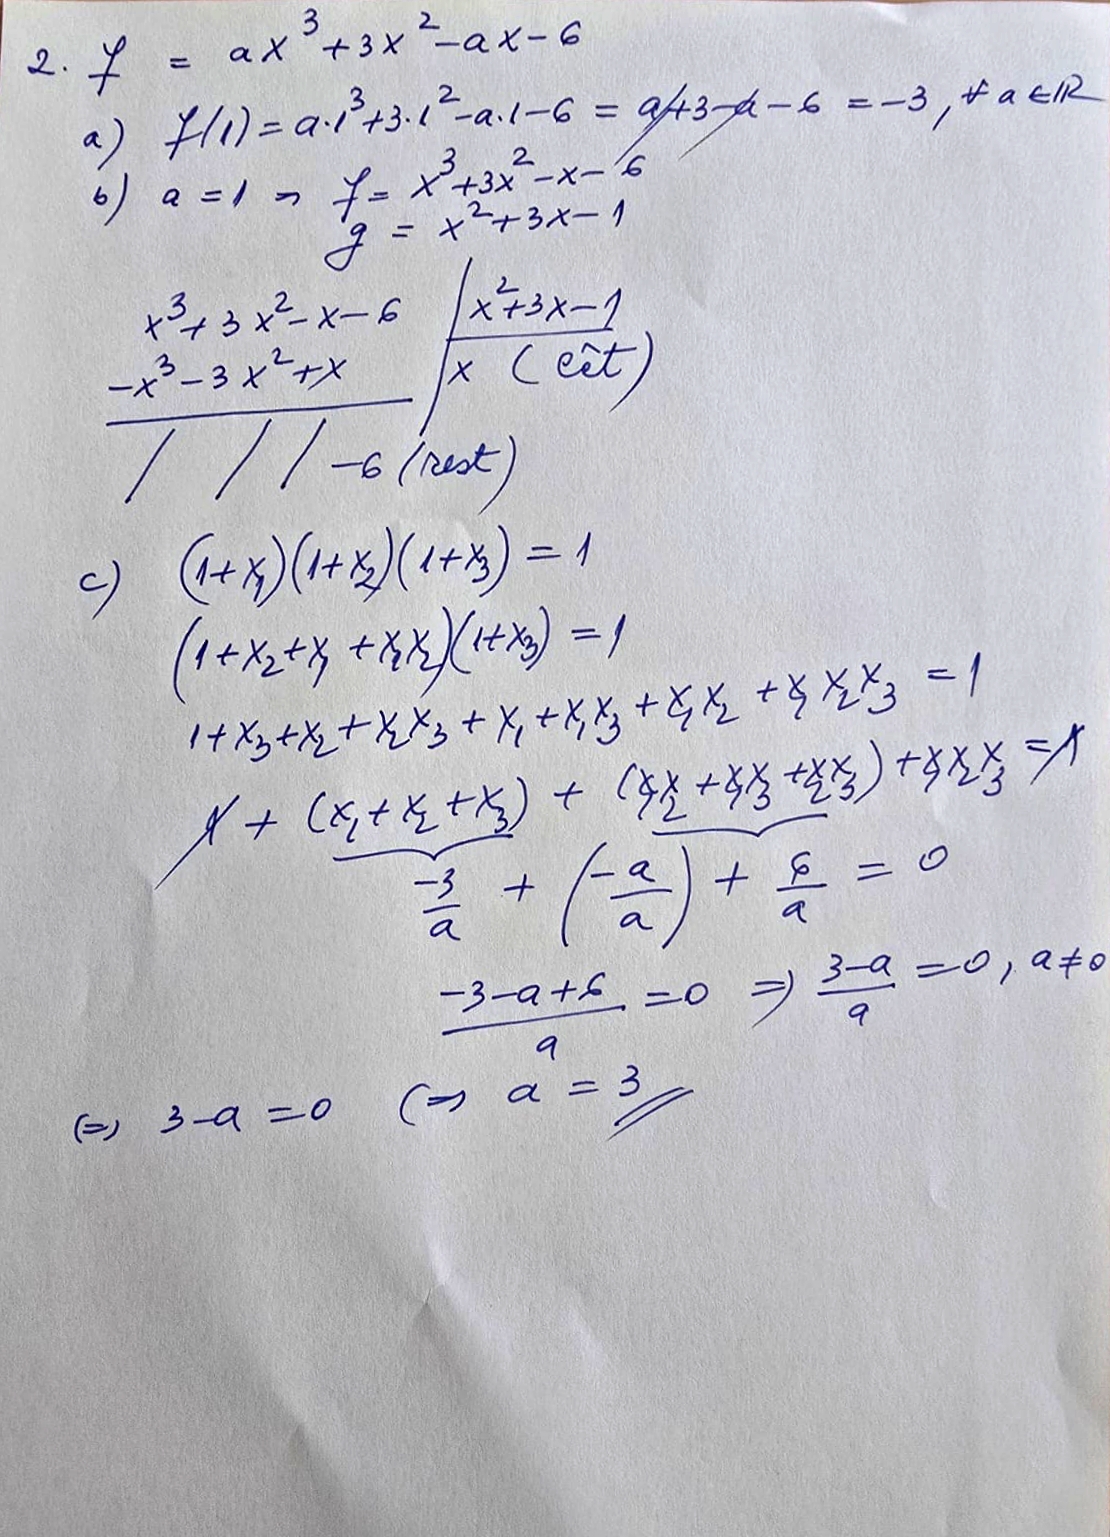 2. f = ax³+3x²-ax-6
a) f(1) = a·1³+3·1²-a·1-6 = a+3-a-6 = -3, ∀ a∈ℝ
b) a=1 ⇒ f= x³+3x²-x-6
g = x²+3x-1
x³+3x²-x-6 | x²+3x-1
-x³-3x²+x | x (cât)
/ / / -6 (rest)
c) (1+x₁)(1+x₂)(1+x₃) = 1
(1+x₂+x₁+x₁x₂)(1+x₃) = 1
1+x₃+x₂+x₂x₃+x₁+x₁x₃+x₁x₂+x₁x₂x₃ = 1
1+(x₁+x₂+x₃)+(x₁x₂+x₁x₃+x₂x₃)+x₁x₂x₃ = 1
-3/a + (-a/a) + 6/a = 0
(-3-a+6)/a = 0 ⇒ (3-a)/a = 0, a≠0
(⇒) 3-a = 0 (⇒ a = 3